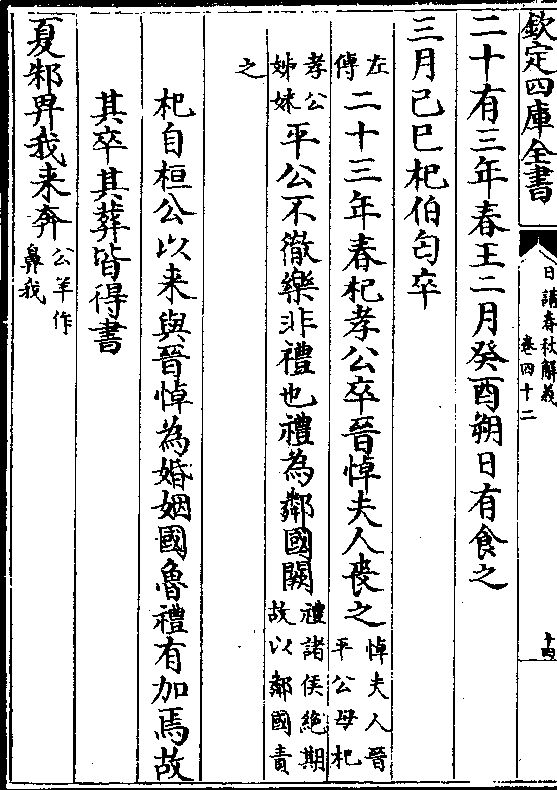 欽定四庫全書
日講春秋解義
卷四十二
十四
二十有三年春王二月癸酉朔日有食之
三月己巳杞伯匄卒
左傳二十三年春杞孝公卒晉悼夫人喪之悼夫人晉平公母杞
孝公姊妹平公不徹樂非禮也禮為鄰國闕禮諸侯絶期故以鄰國責
之
杞自桓公以来與晉悼為婚姻國魯禮有加焉故
其卒其葬皆得書
夏邾畀我来奔公羊作鼻我